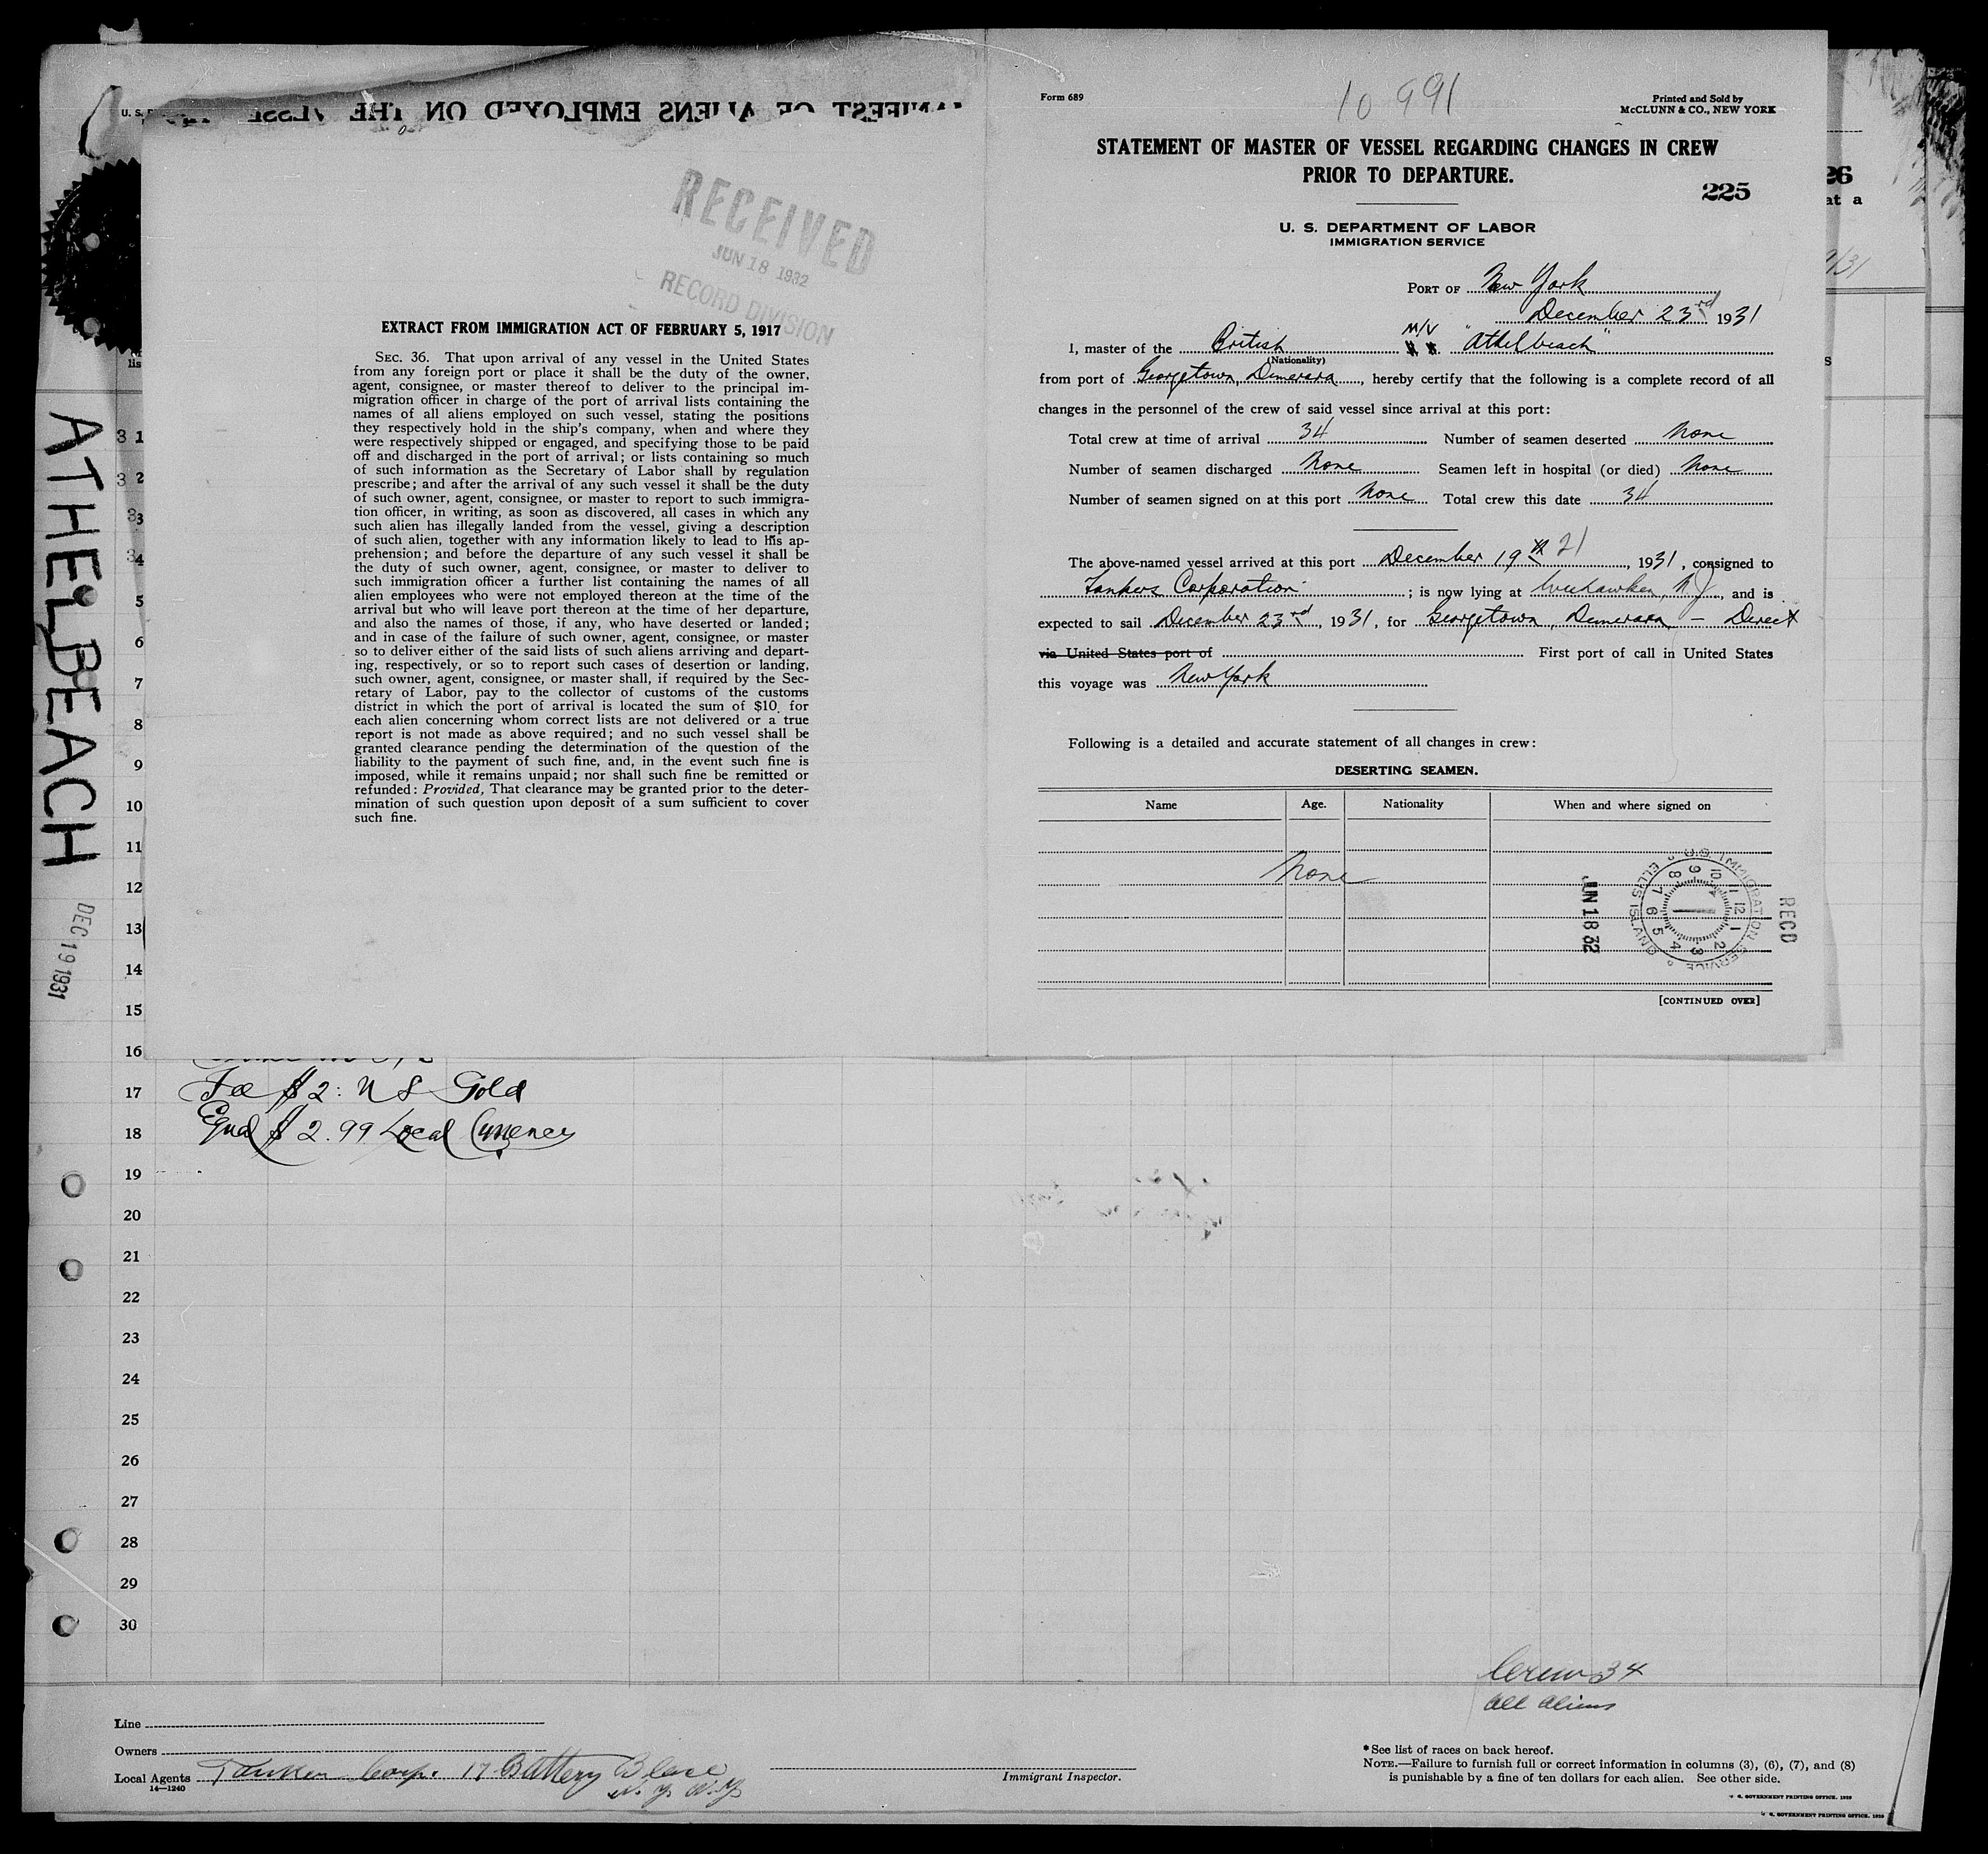 U. S.
MANIFEST OF ALIENS EMPLOYED ON THE VESSEL
RECEIVED
JUN 18 1932
RECORD DIVISION
EXTRACT FROM IMMIGRATION ACT OF FEBRUARY 5, 1917
SEC. 36. That upon arrival of any vessel in the United States
from any foreign port or place it shall be the duty of the owner,
agent, consignee, or master thereof to deliver to the principal im-
migration officer in charge of the port of arrival lists containing the
names of all aliens employed on such vessel, stating the positions
they respectively hold in the ship's company, when and where they
were respectively shipped or engaged, and specifying those to be paid
off and discharged in the port of arrival; or lists containing so much
of such information as the Secretary of Labor shall by regulation
prescribe; and after the arrival of any such vessel it shall be the duty
of such owner, agent, consignee, or master to report to such immigra-
tion officer, in writing, as soon as discovered, all cases in which any
such alien has illegally landed from the vessel, giving a description
of such alien, together with any information likely to lead to his ap-
prehension; and before the departure of any such vessel it shall be
the duty of such owner, agent, consignee, or master to deliver to
such immigration officer a further list containing the names of all
alien employees who were not employed thereon at the time of the
arrival but who will leave port thereon at the time of her departure,
and also the names of those, if any, who have deserted or landed;
and in case of the failure of such owner, agent, consignee, or master
so to deliver either of the said lists of such aliens arriving and depart-
ing, respectively, or so to report such cases of desertion or landing,
such owner, agent, consignee, or master shall, if required by the Sec-
retary of Labor, pay to the collector of customs of the customs
district in which the port of arrival is located the sum of $10 for
each alien concerning whom correct lists are not delivered or a true
report is not made as above required; and no such vessel shall be
granted clearance pending the determination of the question of the
liability to the payment of such fine, and, in the event such fine is
imposed, while it remains unpaid; nor shall such fine be remitted or
refunded: Provided, That clearance may be granted prior to the deter-
mination of such question upon deposit of a sum sufficient to cover
such fine.
Form 689
10 991
Printed and Sold by
McCLUNN & CO., NEW YORK
STATEMENT OF MASTER OF VESSEL REGARDING CHANGES IN CREW
PRIOR TO DEPARTURE.
225
U. S. DEPARTMENT OF LABOR
IMMIGRATION SERVICE
PORT OF New York
December 23rd 1931
I, master of the British M/V "Athelbeach"
(Nationality)
from port of Georgetown, Demerara, hereby certify that the following is a complete record of all
changes in the personnel of the crew of said vessel since arrival at this port:
Total crew at time of arrival 34 Number of seamen deserted None
Number of seamen discharged None Seamen left in hospital (or died) None
Number of seamen signed on at this port None Total crew this date 34
The above-named vessel arrived at this port December 19th 21, 1931, consigned to
Tankers Corporation; is now lying at Weehawken, N J, and is
expected to sail December 23rd, 1931, for Georgetown, Demerara - Direct
via United States port of First port of call in United States
this voyage was New York
Following is a detailed and accurate statement of all changes in crew:
DESERTING SEAMEN.
Name Age. Nationality When and where signed on
None
U.S. IMMIGRATION SERVICE ELLIS ISLAND
1 2 3 4 5 6 7 8 9 10 11 12
JUN 18 32
RECD
[CONTINUED OVER]
26
at a
/31
s
lis
ATHELBEACH
DEC 19 1931
3 1
3 2
33
34
5
6
7
8
9
10
11
12
13
14
15
16
17 Fee $2: U S Gold
18 Equal $2.99 Local Currency
19
20
21
22
23
24
25
26
27
28
29
30
Crew 34
all aliens
Line
Owners
Local Agents Tanker Corp. 17 Battery Place
N. Y. N. Y.
14—1240
Immigrant Inspector.
*See list of races on back hereof.
NOTE.—Failure to furnish full or correct information in columns (3), (6), (7), and (8)
is punishable by a fine of ten dollars for each alien. See other side.
GOVERNMENT PRINTING OFFICE.
GOVERNMENT PRINTING OFFICE.